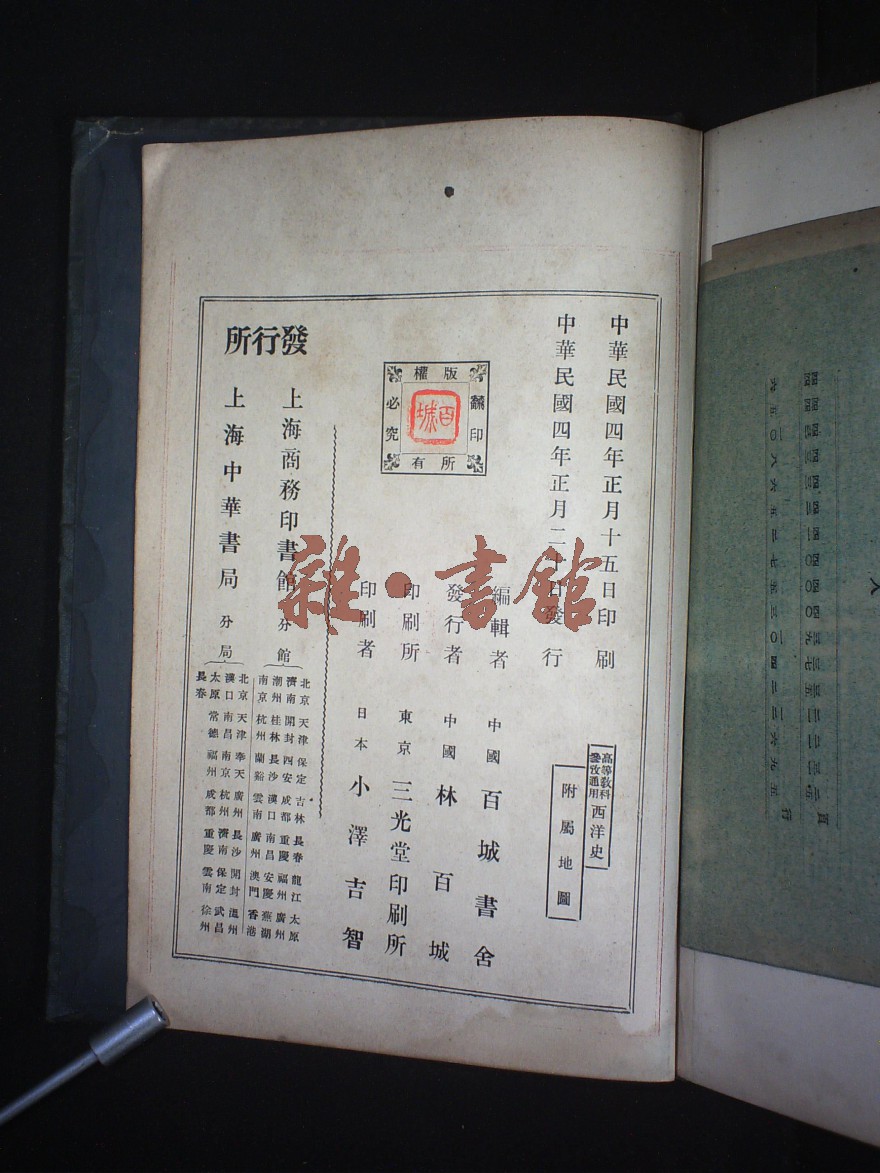 中華民國四年正月十五日印刷
中華民國四年正月二十日發行
高等教科
參攷通用
西洋史
附屬地圖
版權所有
翻印必究
百城
編輯者 中國 百城書舍
發行者 中國 林百城
印刷所 東京 三光堂印刷所
印刷者 日本 小澤吉智
發行所
上海商務印書館分館
北京 天津 保定 吉林 長春 龍江 太原
濟南 開封 西安 成都 重慶 福州 廣州
潮州 桂林 長沙 漢口 南昌 安慶 蕪湖
南京 杭州 蘭谿 雲南 廣州 澳門 香港
上海中華書局分局
北京 天津 奉天 廣州 長沙 開封 溫州
漢口 南昌 南京 杭州 濟南 保定 武昌
太原 常德 福州 成都 重慶 雲南 徐州
長春
雜·書館